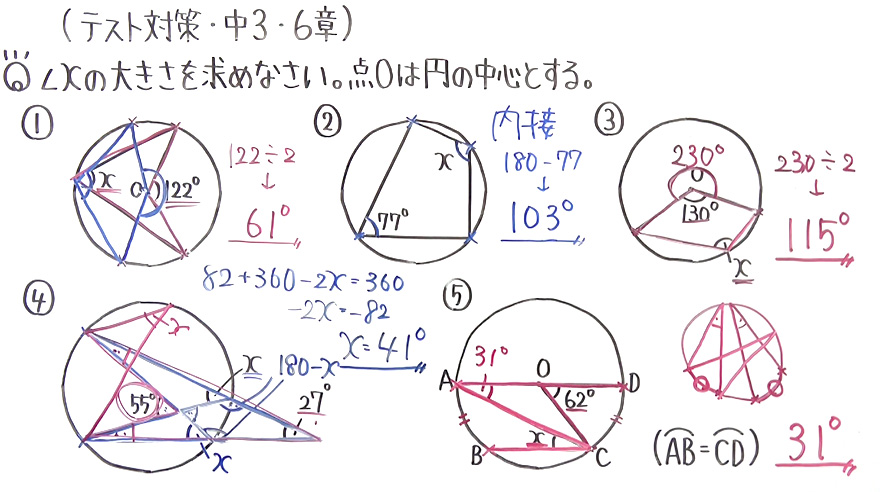 (テスト対策・中3・6章)
◎∠xの大きさを求めなさい。点Oは円の中心とする。
① x O 122° 122÷2 ↓ 61°
② x 77° 内接 180-77 ↓ 103°
③ 230° O 130° x 230÷2 ↓ 115°
82+360-2x=360
-2x=-82
x=41°
④ x 55° x 180-x 27° x
⑤ 31° A O D 62° x B C (AB=CD) 31°